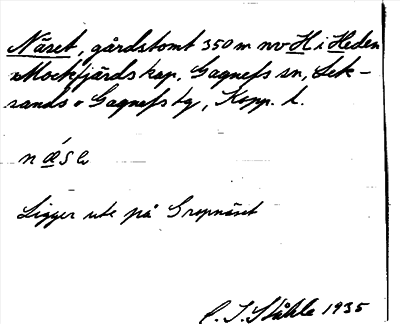 Näset, gårdstomt 350 m nv H i Heden
Mockfjärds kap, Gagnefs sn, Lek-
sands o Gagnefs tg, Kopp. l.
Ligger ute på Gropnäset
C. I. Ståhle 1935